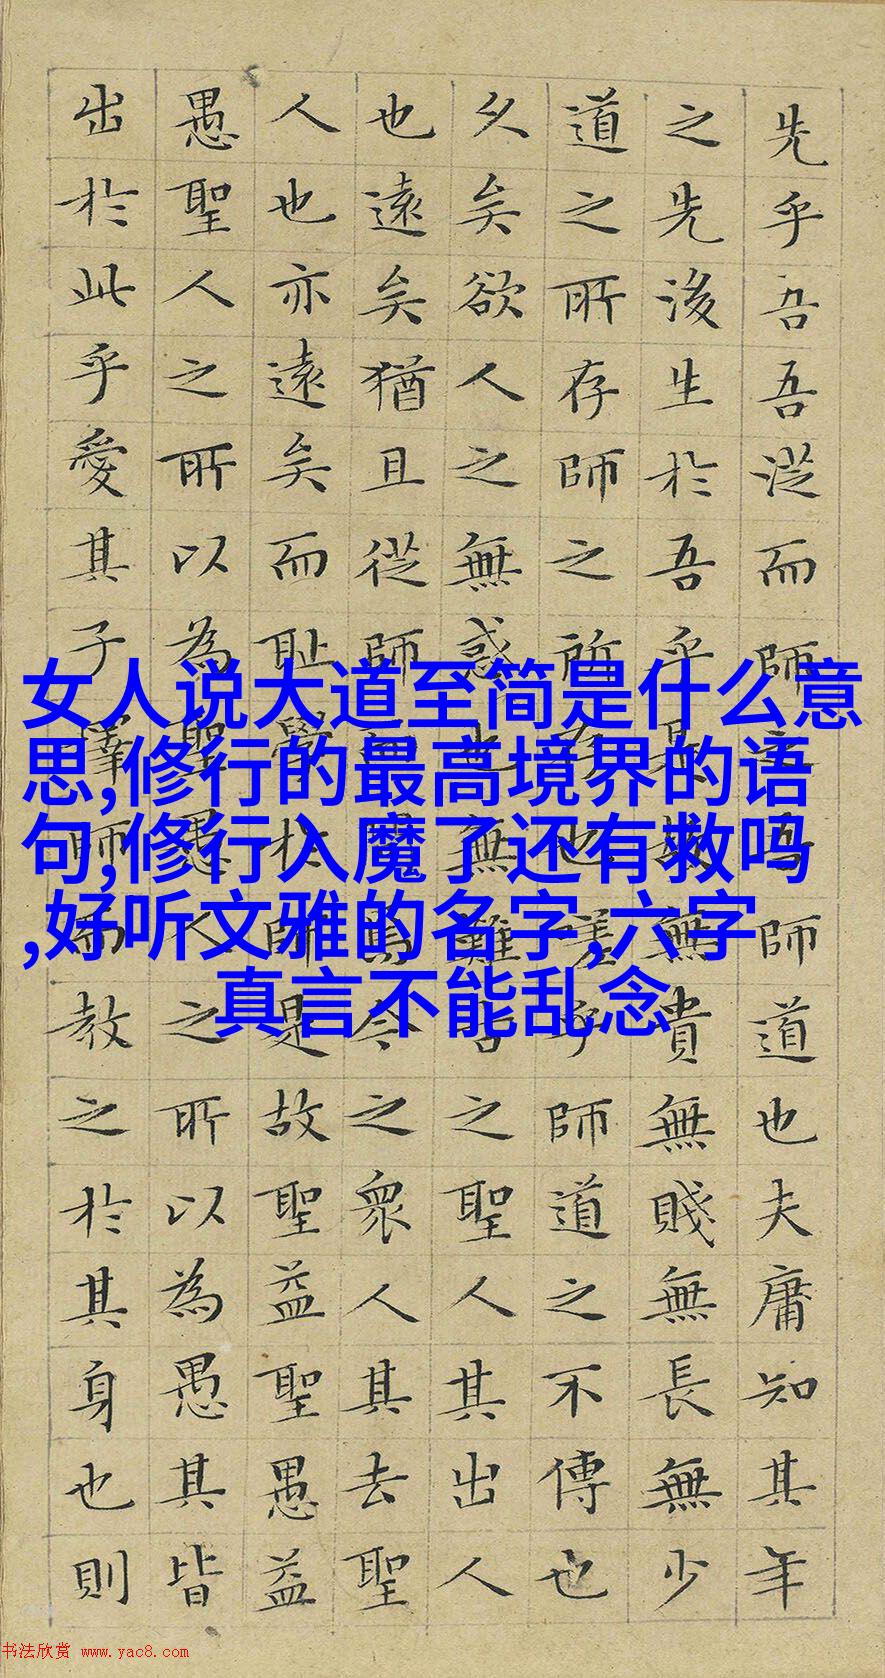 先乎吾吾從而師之吾師道也夫庸知其年
之先後生於吾乎是故無貴無賤無長無少
道之所存師之所存也嗟乎師道之不傳也
久矣欲人之無惑也無難古之聖人其出人
也遠矣猶且從師而問焉今之眾人其去聖
人也亦遠矣而耻學於師是故聖益聖愚益
愚聖人之所以為聖愚人之所以為愚其皆
出於此乎愛其子擇師而教之於其身也則
女人说大道至简是什么意
思,修行的最高境界的语
句,修行入魔了还有救吗
,好听文雅的名字,六字
真言不能乱念
书法欣赏 www.yac8.com